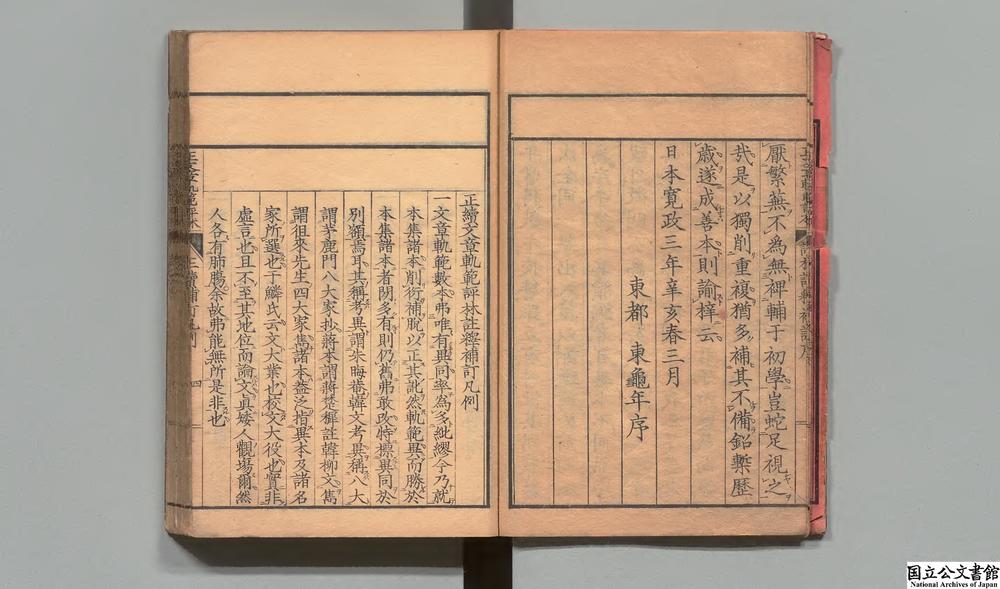 厭繁蕪不為無裨輔于初學豈蛇足視之
哉是以獨削重複猶多補其不備鉛槧歷
歲遂成善本則諭梓云
日本寛政三年辛亥春三月
東都 東龜年序
正續文章軌範評林註釋補訂凡例
一文章軌範數本弗唯有異同率為多紕繆今乃就
本集諸本削衍補脫以正其訛然軌範異而勝於
本集諸本者閒多有則仍舊弗敢改特標異同於
別額焉耳其稱考異謂朱晦菴韓文考異稱八大
謂茅鹿門八大家抄蔣本謂蔣楚穉註韓柳文雋
謂徂來先生四大家雋諸本益泛指異本及諸名
家所選也于鱗氏云文大業也校文大役也實非
虛言也且不至其地位而論文眞矮人觀場爾然
人各有肺腸余故弗能無所是非也
四
国立公文書館
National Archives of Japan